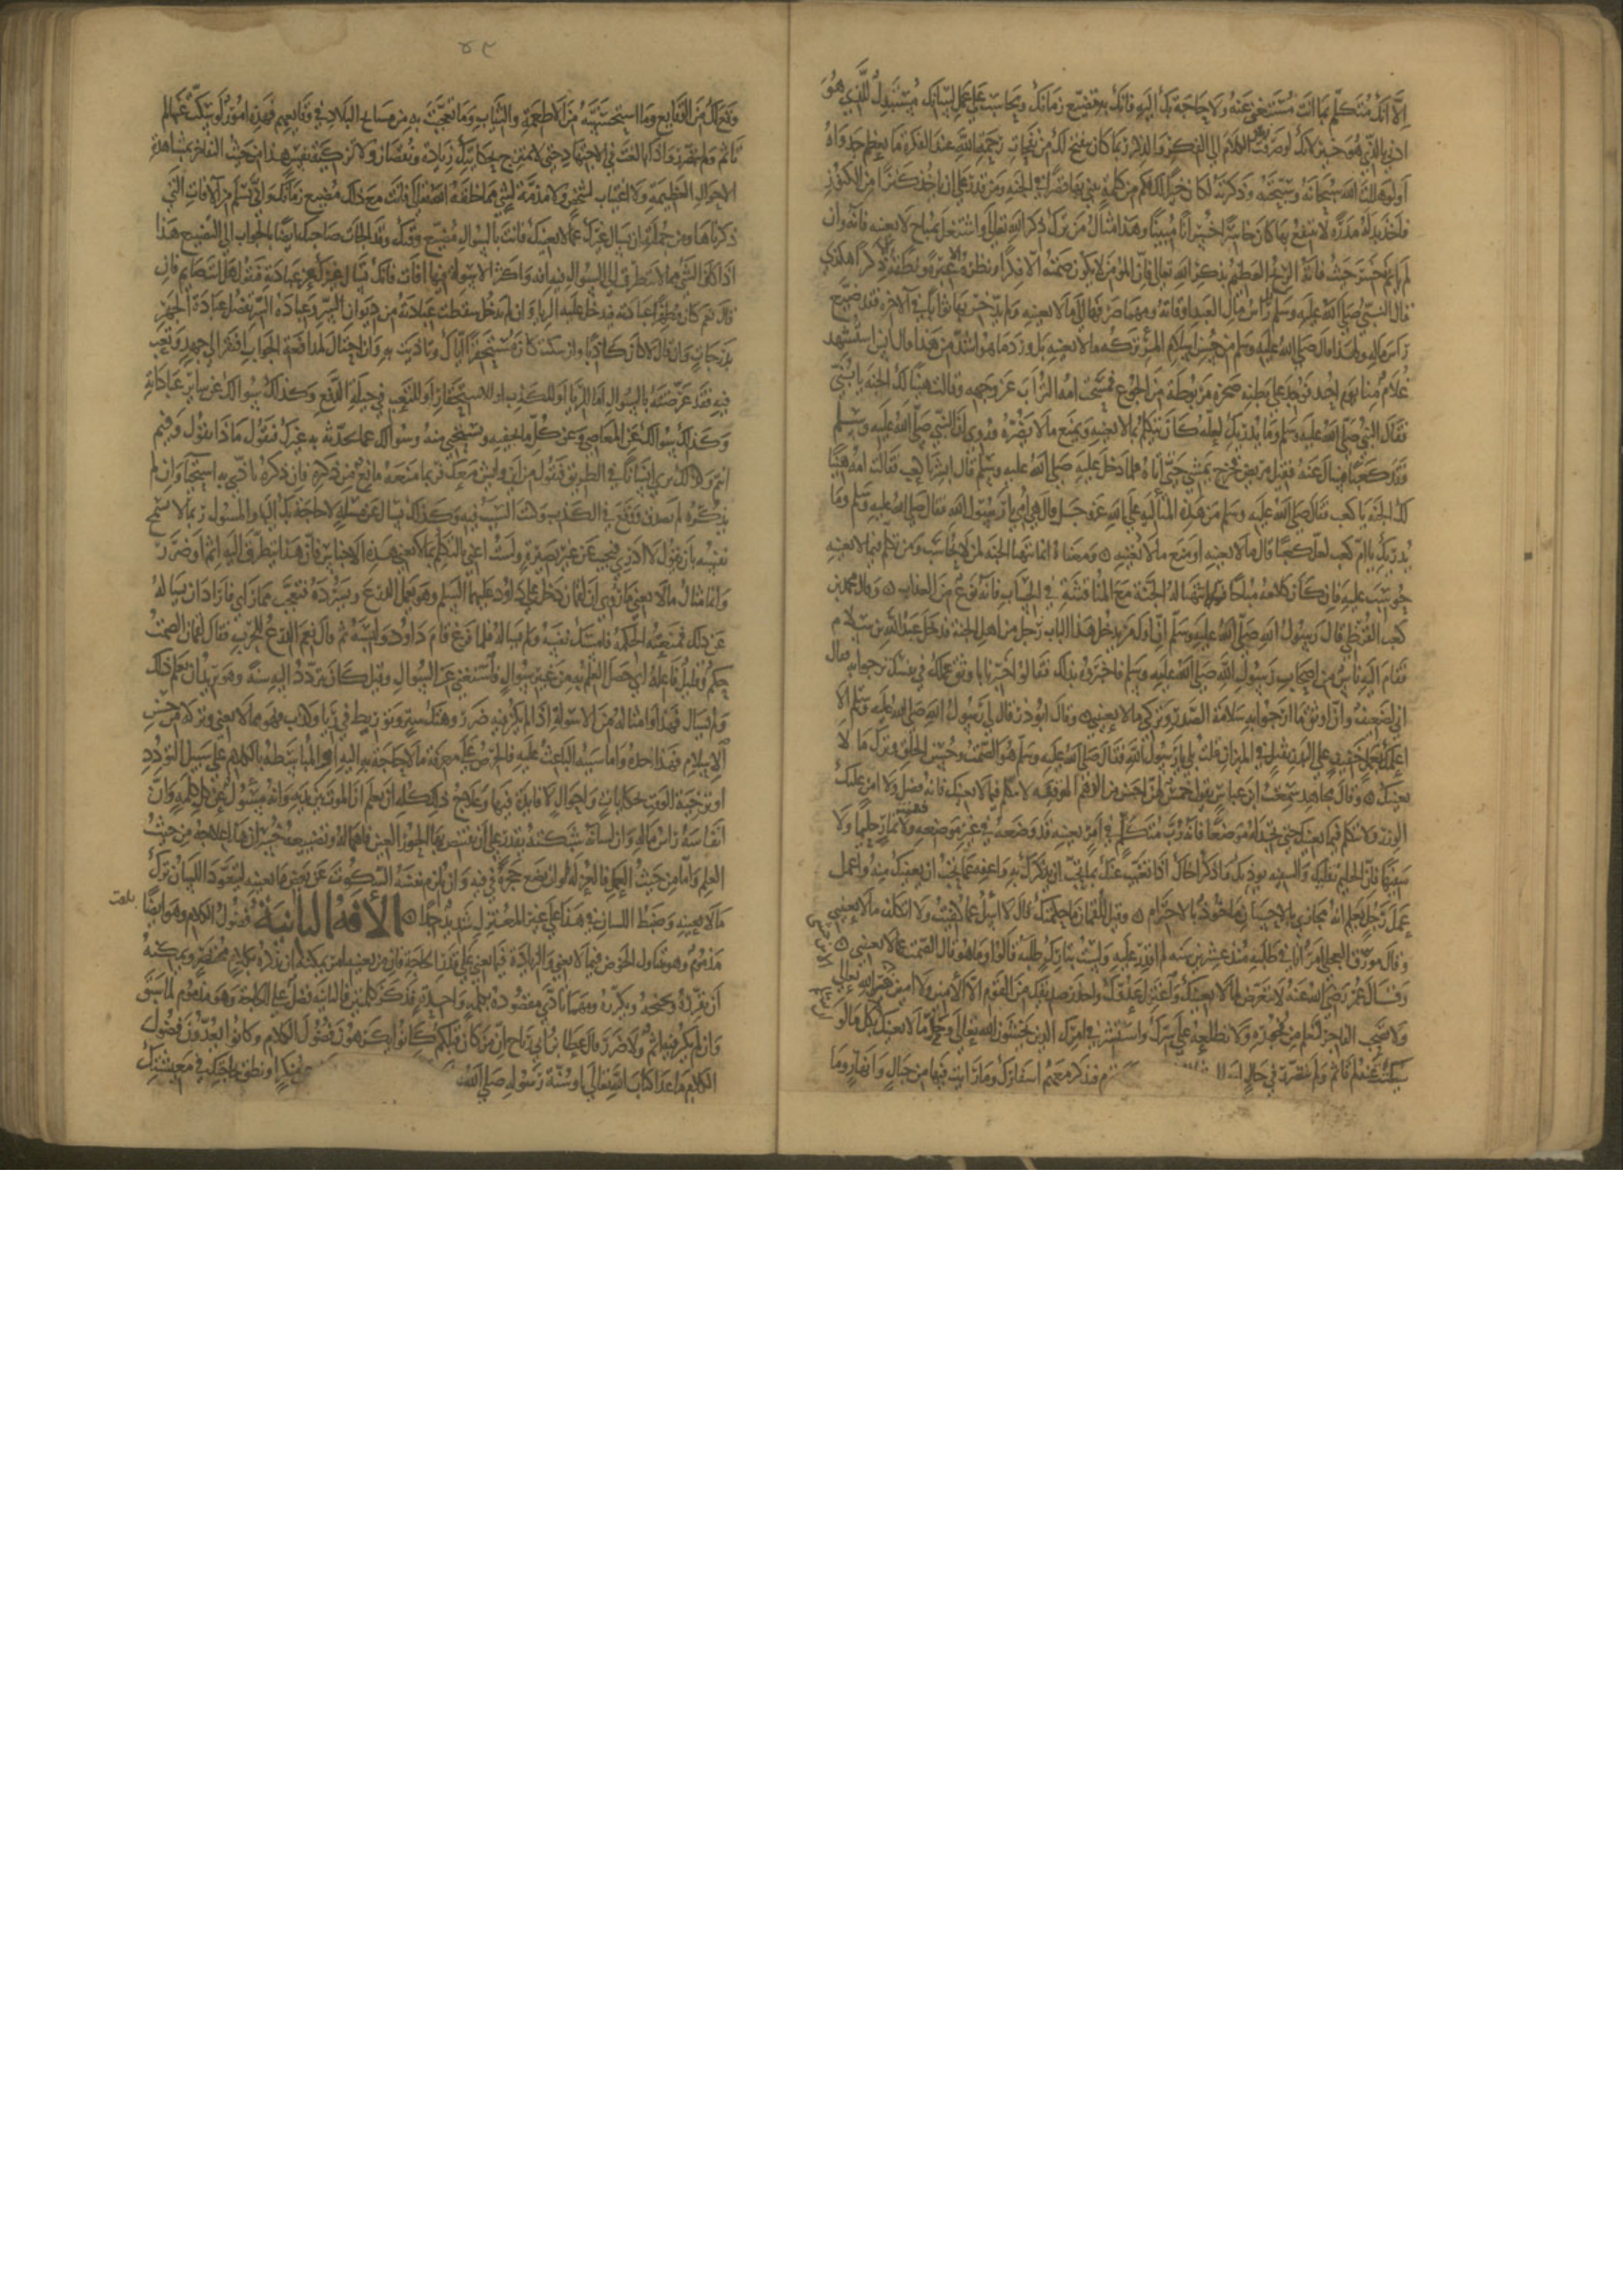 إلا أنك متكلم بما أنت مستغن عنه ولا حاجة بك إليه فإنك به مضيع زمانك ومحاسب على عمل لسانك مستبدل للذي هو
أدنى بالذي هو خير لأنك لو صرفت الكلام إلى الفكر والذكر ربما كان ينفتح لك من نفحات رحمة الله عند الفكرة ما يعظم جدواه
أو لو هللت الله سبحانه وسبحته وذكرته لكان خيرا لك فكم من كلمة يبنى بها قصرا في الجنة ومن قدر على أن يأخذ كنزا من الكنوز
فأخذ بدله مدرة لا ينتفع بها كان خاسرا خسرانا مبينا وهذا مثال من ترك ذكر الله تعالى واشتغل بمباح لا يعنيه فإنه وإن
لم يأثم فقد خسر حيث فاته الربح العظيم بذكر الله تعالى فإن المؤمن لا يكون صمته إلا فكرا ونظره إلا عبرة ونطقه إلا ذكرا هكذى
قال النبي صلى الله عليه وسلم بل رأس مال العبد أوقاته ومهما صرفها إلى ما لا يعنيه ولم يدخر بها ثوابا في الآخرة فقد ضيع
رأس ماله ولهذا قال صلى الله عليه وسلم من حسن إسلام المرء تركه ما لا يعنيه بل ورد ما هو أشد من هذا قال أنس استشهد
غلام منا يوم أحد فوجد على بطنه صخرة مربوطة من الجوع فمسحت أمه التراب عن وجهه وقالت هنيئا لك الجنة يا بني
فقال النبي صلى الله عليه وسلم وما يدريك لعله كان يتكلم بما لا يعنيه ويمنع ما لا يضره وروى أن النبي صلى الله عليه وسلم
فقد كعبا فسأل عنه فقيل مريض فخرج يمشي حتى أتاه فلما دخل عليه صلى الله عليه وسلم قال أبشر يا كعب فقالت أمه هنيئا
لك الجنة يا كعب فقال صلى الله عليه وسلم من هذه المتألية على الله عز وجل قال هي أمي يا رسول الله فقال صلى الله عليه وسلم وما
يدريك يا أم كعب لعل كعبا قال ما لا يعنيه أو منع ما لا يغنيه ومعناه إنما تتهيأ الجنة لمن لا يحاسب ومن تكلم فيما لا يعنيه
حوسب عليه فإن كان كلامه مباحا فلا تتهيأ له الجنة مع المناقشة في الحساب فإنه نوع من العذاب وقال محمد بن
كعب القرظي قال رسول الله صلى الله عليه وسلم إن أول من يدخل هذا الباب رجل من أهل الجنة فدخل عبد الله بن سلام
فقام إليه ناس من أصحاب رسول الله صلى الله عليه وسلم فأخبروه بذلك فقالوا أخبرنا بأوثق عملك في نفسك ترجو به فقال
إني لضعيف وإن أوثق ما أرجو به سلامة الصدر وتركي ما لا يعنيني وقال أبو ذر قال لي رسول الله صلى الله عليه وسلم ألا
أعلمك بعمل خفيف على البدن ثقيل في الميزان قلت بلى يا رسول الله فقال صلى الله عليه وسلم هو الصمت وحسن الخلق وترك ما لا
يعنيك وقال مجاهد سمعت ابن عباس يقول خمس لهن أحسن من الدهم الموقفة لا تتكلم فيما لا يعنيك فإنه فضل ولا آمن عليك
الوزر ولا تتكلم فيما يعنيك حتى تجد له موضعا فإنه رب متكلم في أمر يعنيه قد وضعه في غير موضعه فعنت ولا تمار حليما ولا
سفيها فإن الحليم يقليك والسفيه يؤذيك واذكر أخاك إذا تغيب عنك بما تحب أن يذكرك به وأعفه عما تحب أن يعفيك منه واعمل
عمل رجل يعلم أنه مجازى بالإحسان مأخوذ بالاحترام وقيل للقمان ما حكمتك قال لا أسأل عما كفيت ولا أتكلف ما لا يعنيني
وقال مورق العجلي أمر أنا في طلبه منذ عشرين سنة لم أقدر عليه ولست بتارك طلبه قالوا وما هو قال الصمت عما لا يعنيني
وقال عمر رضي الله عنه لا تتعرض لما لا يعنيك واعتزل عدوك واحذر صديقك من القوم إلا الأمين ولا أمين إلا من خشي الله تعالى
ولا تصحب الفاجر فتعلم من فجوره ولا تطلعه على سرك واستشر في أمرك الذين يخشون الله تعالى وحد ما لا يعنيك بكل ما لو
سكت عنه لم تأثم ولم تتضرر في حال فتذكر معهم أسفارك وما رأيت فيها من جبال وأنهار وما
٤٩
وقع لك من الوقائع وما استحسنته من الأطعمة والثياب وما تعجبت به من مشايخ البلاد في وقائعهم فهذه أمور لو سكت عنها لم
تأثم ولم تتضرر وإذا بالغت في الاجتهاد حتى لا يمتزج بحكايتك زيادة ونقصان ولا تزكية نفس هذا من حيث التفاخر بمشاهدة
الأحوال العظيمة ولا اغتياب لشخص ولا مذمة لشيء مما خلقه الله تعالى فأنت مع ذلك مضيع زمانك وأنى تسلم من الآفات التي
ذكرناها ومن جملته أن تسأل غيرك عما لا يعنيك فأنت بالسؤال مضيع وقتك وقد ألجأت صاحبك أيضا بالجواب إلى التضييع هذا
إذا كان الشيء مما لا يتطرق إلى السؤال فيه آفة وأكثر الأسولة فيها آفات فإنك تسأل غيرك عن عبادته فتقول هل أنت صائم فإن
قال نعم كان مظهرا عبادته فيدخل عليه الريا وإن لم يدخل سقطت عبادته من ديوان السر وعبادة السر تفضل عبادة الجهر
بدرجات وإن قال لا كان كاذبا وإن سكت كان مستحقرا إياك وتأذيت به وإن احتال لمدافعة الجواب افتقر إلى جهد وتعب
فيه فقد عرضته بالسؤال إما للريا أو للكذب أو للاستحقار أو للتعب في حيلة الدفع وكذلك سؤالك عن سائر عباداته
وكذلك سؤالك عن المعاصي وعن كل ما يخفيه ويستحيي منه وسؤالك عما يحدث به غيرك فتقول ماذا تقول وفيم
أنتم وكذلك ترى إنسانا في الطريق فتقول من أين وليس معك فربما منعه مانع من ذكره فإن ذكره تأذى به واستحيا وإن لم
يذكره لم يصدق ووقع في الكذب وكنت السبب فيه وكذلك تسأل عن مسألة لا حاجة بك إليها والمسؤول ربما لا تسمح
نفسه بأن يقول لا أدري فيجيب عن غير بصيرة ولست أعني بالتكلم بما لا يعني هذه الأجناس فإن هذا يتطرق إليه إثم أو ضرر
وإنما مثال ما لا يعني ما روي أن لقمان دخل على داود عليهما السلام وهو يعمل الدرع ويسرده فتعجب مما رأى فأراد أن يسأله
عن ذلك فمنعته الحكمة فأمسك نفسه ولم يسأله فلما فرغ قام داود ولبسه ثم قال نعم الدرع للحرب فقال لقمان الصمت
حكم وقليل فاعله أي حصل العلم به من غير سؤال فاستغنى عن السؤال وقيل كان يتردد إليه سنة وهو يريد أن يعلم ذلك
ولم يسأل فهذا وأمثاله من الأسولة إذا لم يكن فيه ضرر وهتك ستر وتوريط في ريا وكذب فهو مما لا يعني وتركه من حسن
الإسلام فهذا حده وأما سببه الباعث عليه فالحرص على معرفة ما لا حاجة به إليه أو المباسطة بالكلام على سبيل التودد
أو تزجية الوقت بحكايات وأحوال لا فائدة فيها وعلاج ذلك كله أن يعلم أن الموت بين يديه وأنه مسؤول عن كل كلمة وأن
أنفاسه رأس ماله وأن لسانه شبكته يقدر على أن يقتنص بها الحور العين فإهماله وتضييعه خسران هذا علاجه من حيث
العلم وأما من حيث العمل فالعزلة أو أن يضع حجرة في فيه وأن يلزم نفسه السكوت عن بعض ما يعنيه ليتعود اللسان ترك
ما لا يعنيه وضبط اللسان في هذا على غير المعتزل شديد جدا الآفة الثانية فضول الكلام وهو أيضا
مذموم وهو يتناول الخوض فيما لا يعني والزيادة فيما يعني على قدر الحاجة فإن من يعنيه أمر يمكنه أن يذكره بكلام مختصر ويمكنه
أن يقرره ويكرره ومهما تأدى مقصوده بكلمة واحدة فذكر كلمتين فالثانية فضل على الحاجة وهو مذموم لما سبق
وإن لم يكن فيه إثم ولا ضرر قال عطاء بن أبي رباح إن من كان قبلكم كانوا يكرهون فضول الكلام وكانوا يعدون فضول
الكلام ما عدا كتاب الله تعالى أو سنة رسوله صلى الله منكر أو نطق بحاجتك في معيشتك